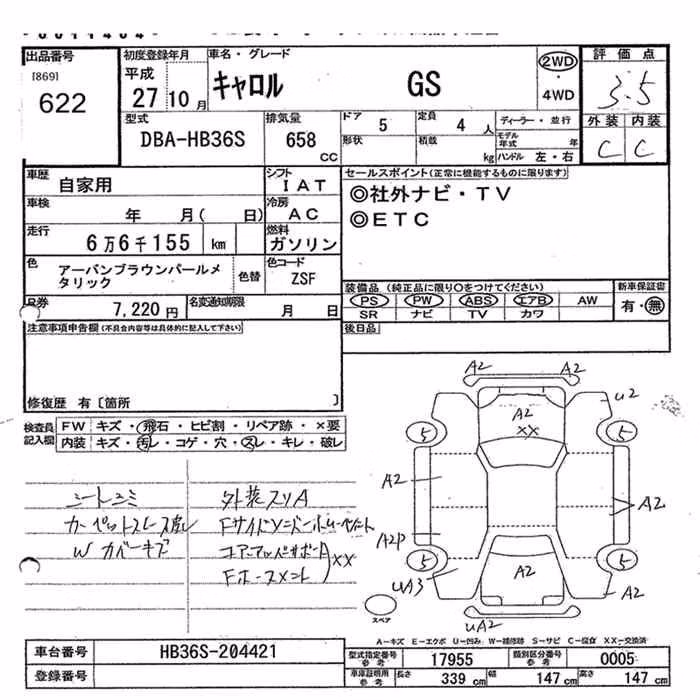 出品番号
[869]
622
初度登録年月
平成
27 10 月
車名・グレード
キャロル GS
2WD
・
4WD
評価点
3.5
外装 内装
C C
型式
DBA-HB36S
排気量
658 CC
ドア 5
定員 4 人
形状
積載 kg
ディーラー・並行
モデル年式 年
ハンドル 左・右
車歴 自家用
シフト IAT
車検 年 月( 日)
冷房 AC
走行 6万6千155 km
燃料 ガソリン
色 アーバンブラウンパールメ
タリック
色替
色コード ZSF
R券 7,220円
名変通知期限 月 日
セールスポイント(正常に機能するものに限ります)
◎社外ナビ・TV
◎ETC
装備品 (純正品に限り○をつけてください)
PS PW ABS エアB AW
SR ナビ TV カワ
新車保証書
有・無
後日品
注意事項申告欄(不具合内容等は具体的に記入して下さい)
修復歴 有〔箇所 〕
検査員記入欄
FW キズ・飛石・ヒビ割・リペア跡・×要
内装 キズ・汚レ・コゲ・穴・スレ・キレ・破レ
シートユミ
W カバーキズ
外装スリA
XX
A2
A2
U2
A2
XX
5
5
A2
A2
A2P
5
5
UA3
A2
A2
UA2
スペア
A-キズ E-エクボ U-凹み W-補修跡 S-サビ C-腐食 XX-交換済
車台番号 HB36S-204421
登録番号
型式指定番号参考 17955
類別区分番号参考 0005
車庫証明用参考 長さ 339 cm 幅 147 cm 高さ 147 cm